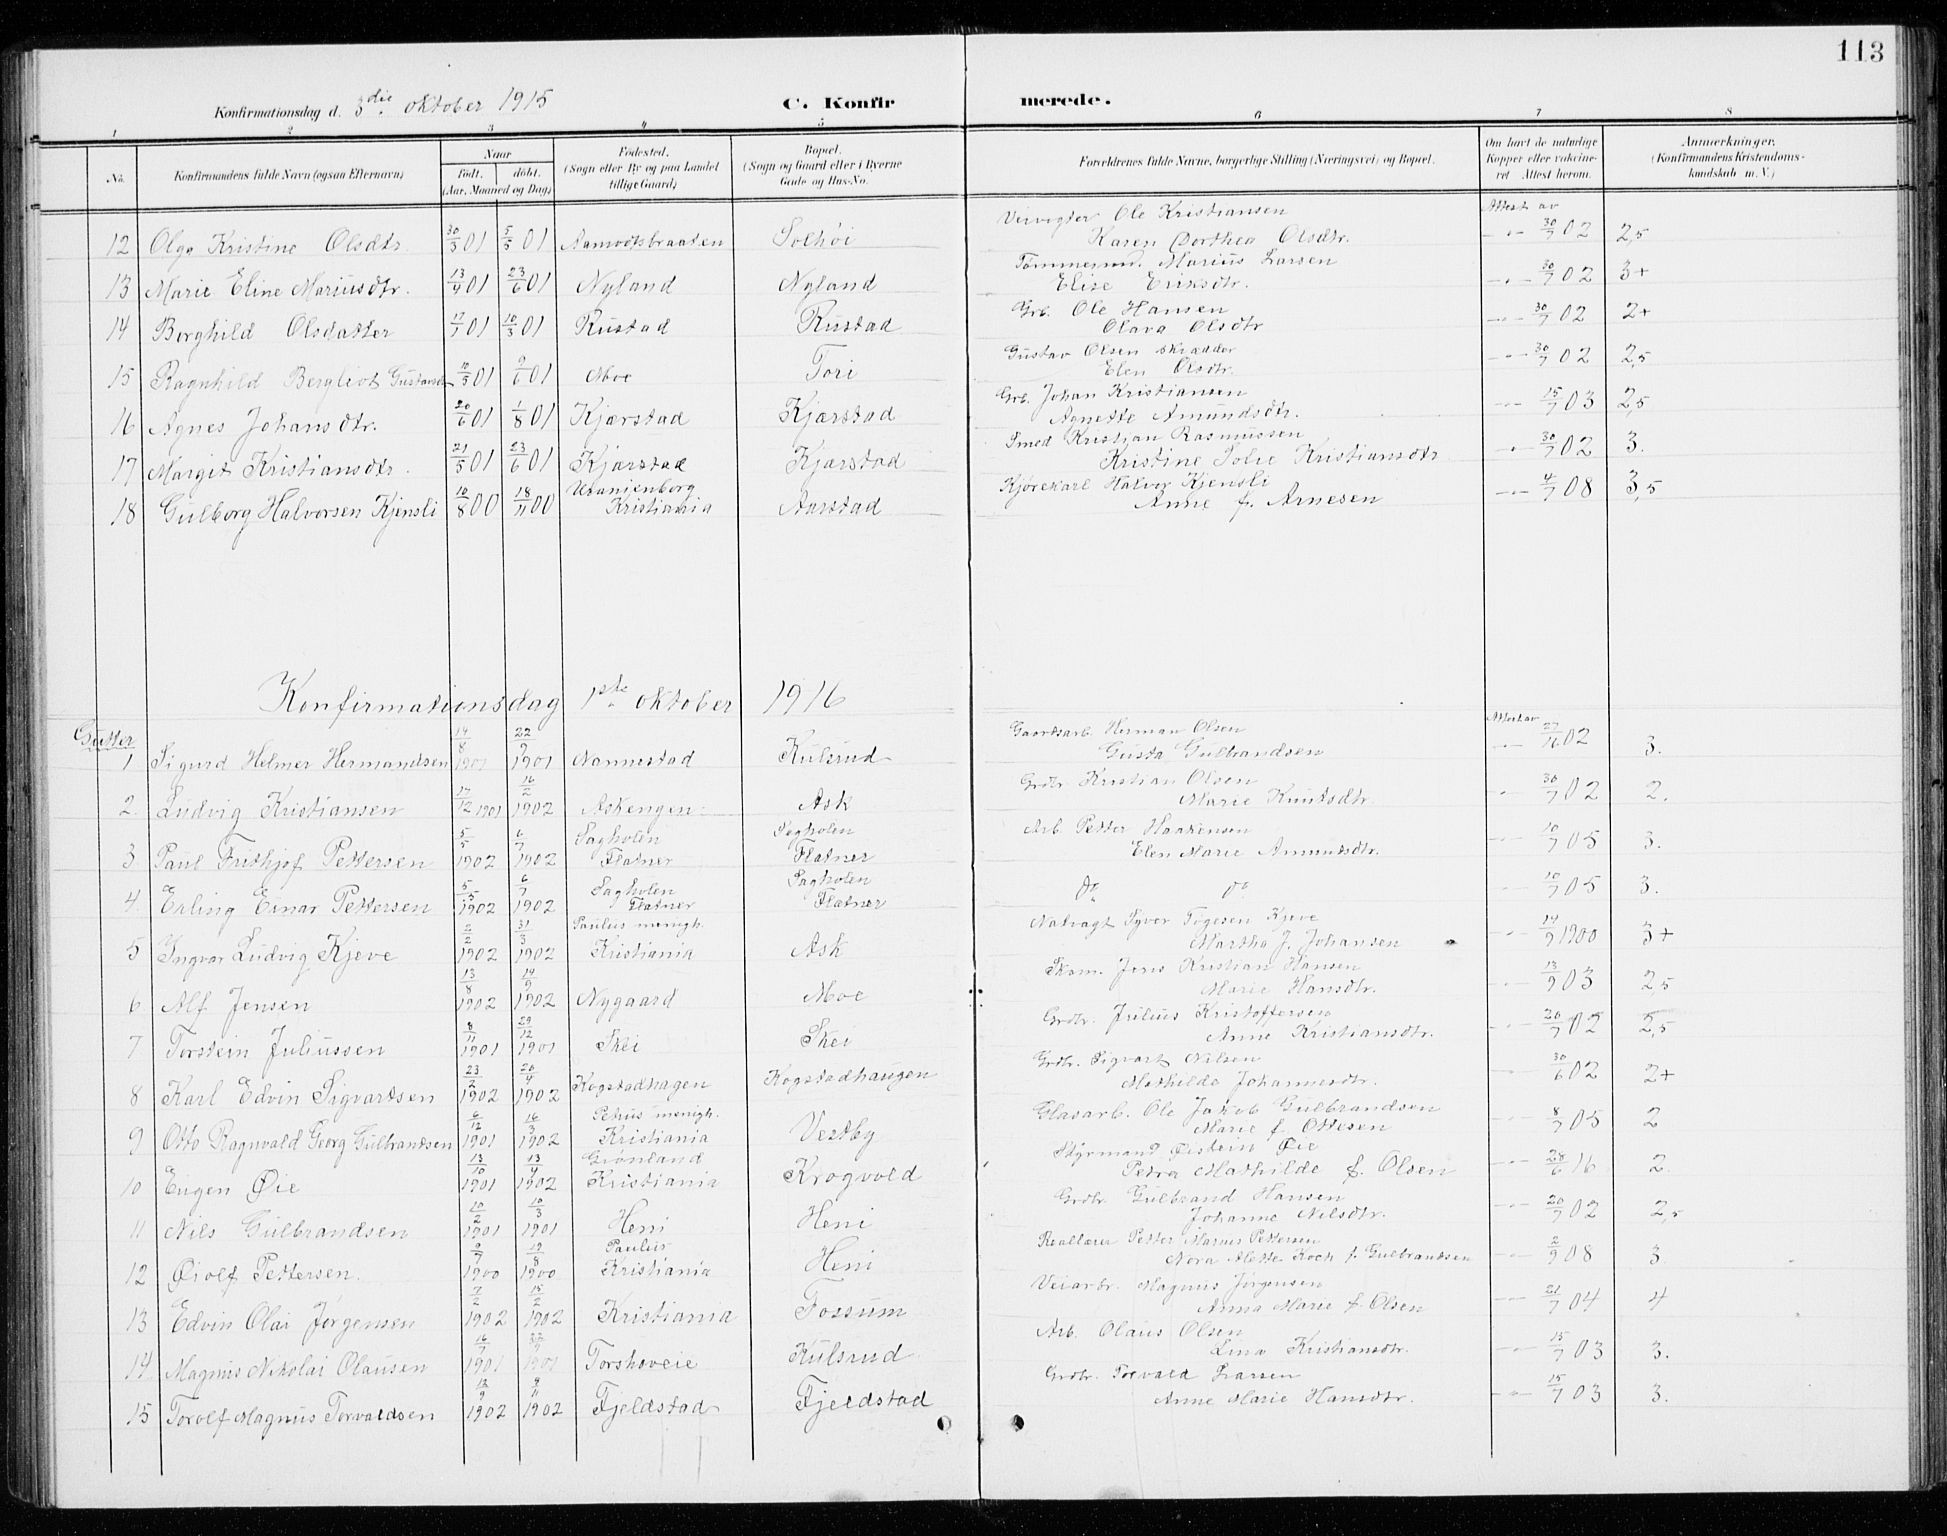 113
Konfirmationsdag d. 3die oktober 1915 C. Konfirmerede.
1 2 3 4 5 6 7 8
No. Konfirmandens fulde Navn (ogsaa Efternavn) Naar født. døbt. (Aar, Maaned og Dag) Fødested. (Sogn eller By og paa Landet tillige Gaard) Bopæl. (Sogn og Gaard eller i Byerne Gade og Hus-No. Forældrenes fulde Navne, borgerlige Stilling (Næringsvei) og Bopæl. Om havt de naturlige Kopper eller vaccineret. Attest herom. Anmærkninger. (Konfirmandens Kristendomskundskab m. V.)
12 Olga Kristine Olsdtr. 30/3 01 5/5 01 Aamodtsbraaten Solhøi Veivogter Ole Kristiansen Karen Dorthea Olsdtr. Attest av 30/7 02 2,5
13 Marie Eline Mariusdtr. 13/4 01 23/6 01 Nyland Nyland Marius Larsen Elise Eriksdtr. 30/7 02 3+
14 Borghild Olsdatter 17/7 01 10/3 01 Rustad Rustad Grb. Ole Hansen Olava Olsdtr 30/7 02 2+
15 Ragnhild Bergliot 10/5 01 9/6 01 Moe Tori Gustav Olsen skrædder Elen Olsdtr. 30/7 02 2,5
16 Agnes Johansdtr. 20/6 01 1/8 01 Kjærstad Kjærstad Grb. Johan Kristiansen Agnette Amundsdtr. 15/7 03 2,5
17 Margit Kristiansdtr. 21/5 01 23/6 01 Kjærstad Kjærstad Smed Kristian Rasmussen Kristine Solie Kristiansdtr 30/7 02 3.
18 Gulborg Halvorsen Kjensli 10/8 00 18/11 00 Uranienborg Kristiania Aarstad Kjørekarl Halvor Kjensli Anne f. Arnesen 4/7 08 3,5
Konfirmationsdag 1ste oktober 1916
Gutter
1 Sigurd Helmer Hermandsen 14/8 1901 22/9 1901 Nannestad Kulsrud Gaardsarb. Herman Olsen Gusta Gulbrandsen Attest av 02 3.
2. Ludvig Kristiansen 17/12 1901 16/2 1902 Askengen Ask Grdbr. Kristian Olsen Marie Knutsdtr. 30/7 02 2.
3 Paul Frithjof Pettersen 5/5 1902 6/7 1902 Sagholen Flatner Sagholen Flatner Arb. Petter Haakensen Elen Marie Amundsdtr. 10/7 05 3.
4. Erling Einar Pettersen 5/5 1902 6/7 1902 Sagholen Flatner Sagholen Flatner do do 10/7 05 3.
5 Ingvar Ludvig Kjeve 2/2 1902 31/3 1902 Paulus menigh. Kristiania Ask Natvagt Syver Kjeve Martha J. Johansen 14/9 1900 3+
6 Alf Jensen 13/8 1902 14/9 1902 Nygaard Moe Skom. Jens Kristian Hansen Marie Hansdtr. 13/9 03 2,5
7 Torstein Juliussen 8/11 1901 29/12 1901 Skei Skei Grdbr. Julius Kristoffersen Anne Kristiansdtr. 30/7 02 2,5
8 Karl Edvin Sigvartsen 23/2 1902 20/4 1902 Kogstadhagen Kogstadhaugen Grdbr. Sigvart Nilsen Mathilde Johannesdtr. 30/6 02 2+
9 Otto Ragnvald Georg Gulbrandsen 6/12 1901 16/3 1902 Petrus menigh. Kristiania Vestby Glasarb. Ole Jakob Gulbrandsen Marie f. Ottesen 8/7 05 2
10 Eugen Øie 13/10 1901 13/4 1902 Grønland Kristiania Krogvold Styrmand Øistein Øie Petra Mathilde f. Olsen 28/6 16 2.
11 Nils Gulbrandsen 10/2 1901 10/3 1901 Heni Heni Grdbr. Gulbrand Hansen Johanne Nilsdtr. 20/7 02 2,5
12 Øiolf Pettersen. 9/7 1900 19/8 1900 Paulus Kristiania Heni Reallærer Petter Marius Pettersen Nora Mette Koch f. Gulbrandsen 2/9 08 3
13 Edvin Olai Jørgensen 7/2 1902 15/2 1902 Kristiania Fossum Veiarbr. Magnus Jørgensen Anna Marie f. Olsen 21/7 04 4
14 Magnus Nikolai Olausen 16/7 1901 22/9 1901 Torshoveie Kulsrud Arb. Olaus Olsen Lina Kristiansdtr. 15/7 03 3.
15 Torolf Magnus Torvaldsen 12/9 1902 9/11 1902 Fjeldstad Fjeldstad Grdbr. Torvald Larsen Anne Marie Hansdtr. 15/7 03 3.